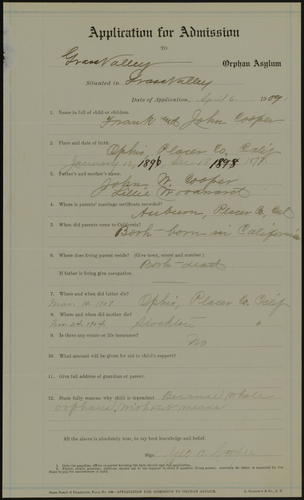 Application for Admission
TO
Grass Valley Orphan Asylum
Situated in Grass Valley
Date of Application, April 6 1909
1. Name in full of child or children.
Frank and John Cooper
2. Place and date of birth.
Ophir, Placer Co. Calif
January 12, 1896, Dec 18 1898
3. Father's and mother's name.
John W. Cooper
Lillie Woodmont
4. Where is parents' marriage certificate recorded?
Auburn, Placer Co, Cal
5. When did parents come to California?
Both-born in California
6. Where does living parent reside? (Give town, street and number.)
Both-dead
If father is living give occupation.
7. Where and when did father die?
Ophir, Placer Co. Calif
8. Where and when did mother die?
Nov. 24. 1904. Stockton "
9. Is there any estate or life insurance?
No
10. What amount will be given for aid to child's support?
11. Give full address of guardian or parent.
12. State fully reasons why child is dependent. Because whole
orphans, without means
All the above is absolutely true, to my best knowledge and belief.
Sign. Geo. A.